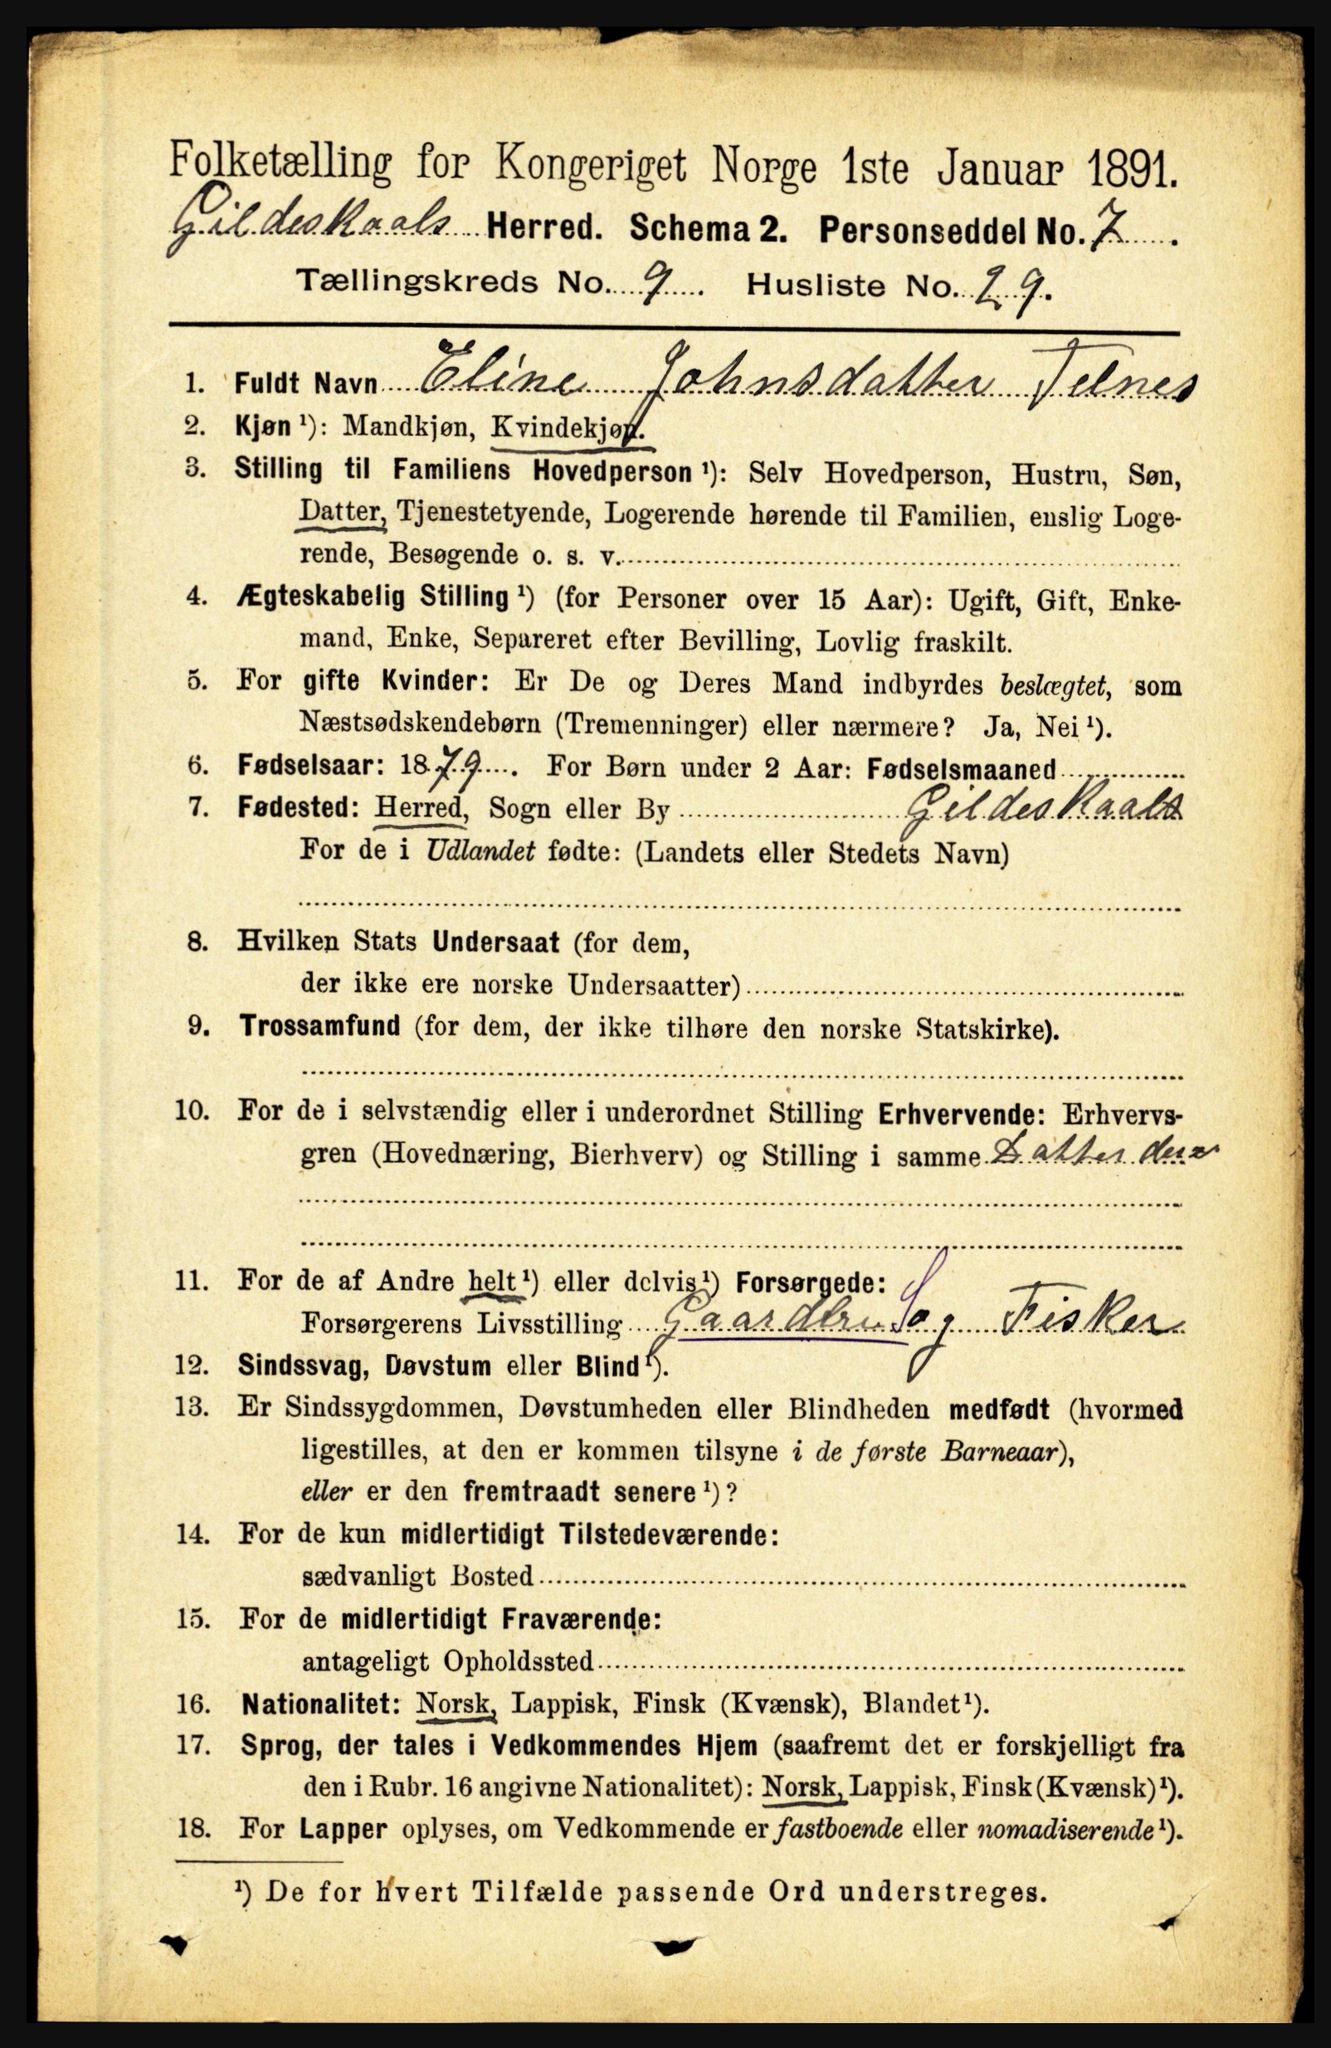 Folketælling for Kongeriget Norge 1ste Januar 1891.
Gildeskaals Herred. Schema 2. Personseddel No. 7.
Tællingskreds No. 9. Husliste No. 29.
1. Fuldt Navn Eline Johnsdatter Telnes
2. Kjøn ¹): Mandkjøn, Kvindekjøn.
3. Stilling til Familiens Hovedperson ¹): Selv Hovedperson, Hustru, Søn,
Datter, Tjenestetyende, Logerende hørende til Familien, enslig Loge-
rende, Besøgende o. s. v.
4. Ægteskabelig Stilling ¹) (for Personer over 15 Aar): Ugift, Gift, Enke-
mand, Enke, Separeret efter Bevilling, Lovlig fraskilt.
5. For gifte Kvinder: Er De og Deres Mand indbyrdes beslægtet, som
Næstsødskendebørn (Tremenninger) eller nærmere? Ja, Nei ¹).
6. Fødselsaar: 1879. For Børn under 2 Aar: Fødselsmaaned
7. Fødested: Herred, Sogn eller By Gildeskaals
For de i Udlandet fødte: (Landets eller Stedets Navn)
8. Hvilken Stats Undersaat (for dem,
der ikke ere norske Undersaatter)
9. Trossamfund (for dem, der ikke tilhøre den norske Statskirke).
10. For de i selvstændig eller i underordnet Stilling Erhvervende: Erhvervs-
gren (Hovednæring, Bierhverv) og Stilling i samme Datter
11. For de af Andre helt ¹) eller delvis ¹) Forsørgede:
Forsørgerens Livsstilling Gaardbru S og Fisker
12. Sindssvag, Døvstum eller Blind ¹).
13. Er Sindssygdommen, Døvstumheden eller Blindheden medfødt (hvormed
ligestilles, at den er kommen tilsyne i de første Barneaar),
eller er den fremtraadt senere ¹)?
14. For de kun midlertidigt Tilstedeværende:
sædvanligt Bosted
15. For de midlertidigt Fraværende:
antageligt Opholdssted
16. Nationalitet: Norsk, Lappisk, Finsk (Kvænsk), Blandet ¹).
17. Sprog, der tales i Vedkommendes Hjem (saafremt det er forskjelligt fra
den i Rubr. 16 angivne Nationalitet): Norsk, Lappisk, Finsk (Kvænsk) ¹).
18. For Lapper oplyses, om Vedkommende er fastboende eller nomadiserende ¹).
¹) De for hvert Tilfælde passende Ord understreges.